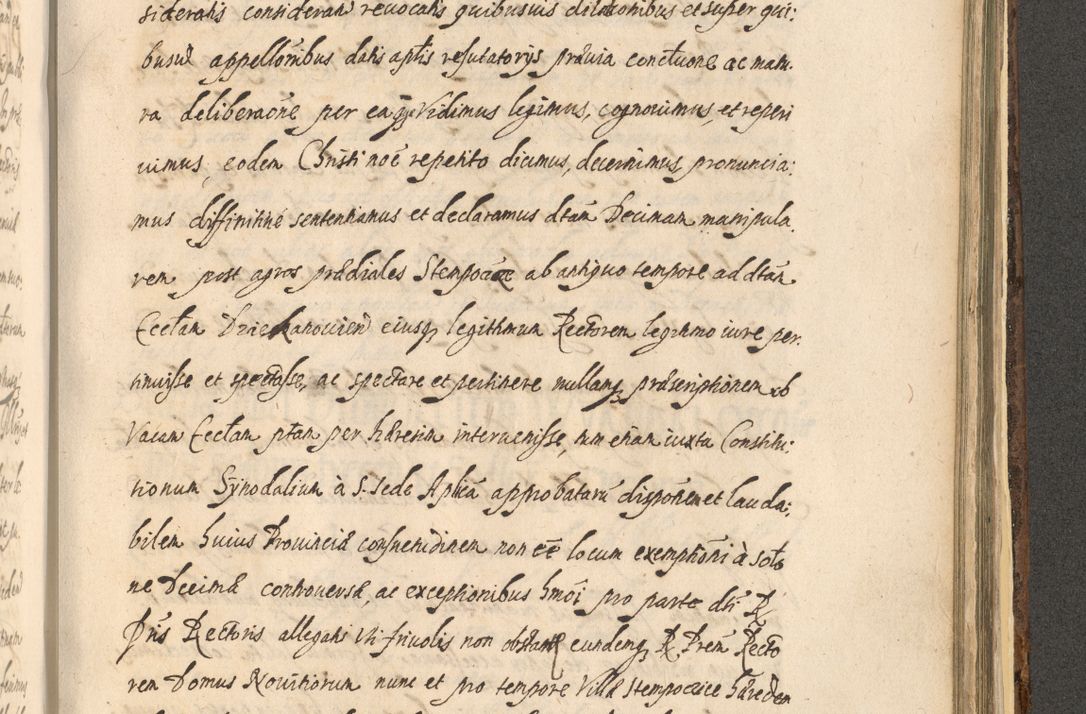 sideratis considerand revocatis quibusvis dilaconibus et super qui:
busvd appellonibus datis aptis refutatorys prævia conctuone ac matu.
ra deliberacne per eaq Vidimus legimus, cognovimus, et reperi
vimus, eodem Christi noe repetito dicimus, decernimus, pronuncia:
mus diffinitiue sententiamus et declaramus dtam Decimam manipula.
rem post agros prædiales Stempocice ab antiquo tempore ad dtam
Ecctam Dziekanovien eiusq legithmum Rectorem legitimo iure per.
tinuisse et spectasse, ac spectare et pertinere nullamq præscriptionem ob
Vacam Ecctam ptam per hæresim intervenisse, tum etiam iuxta Constitu:
tionum Synodalium à S. Sede Aplica approbatarū disponem et lauda:
bilem huius Provinciæ consuetudinem non eē locum exemptioni à soto
ne Decimæ controversæ, ac exceptionibus hmoi pro parte dti R
Pris Rectoris allegatis uti frivolis non obstant eundemq R. Prem Recto
rem Domus Novitiorum nunc et pro tempore Villæ Stempocice hæredem